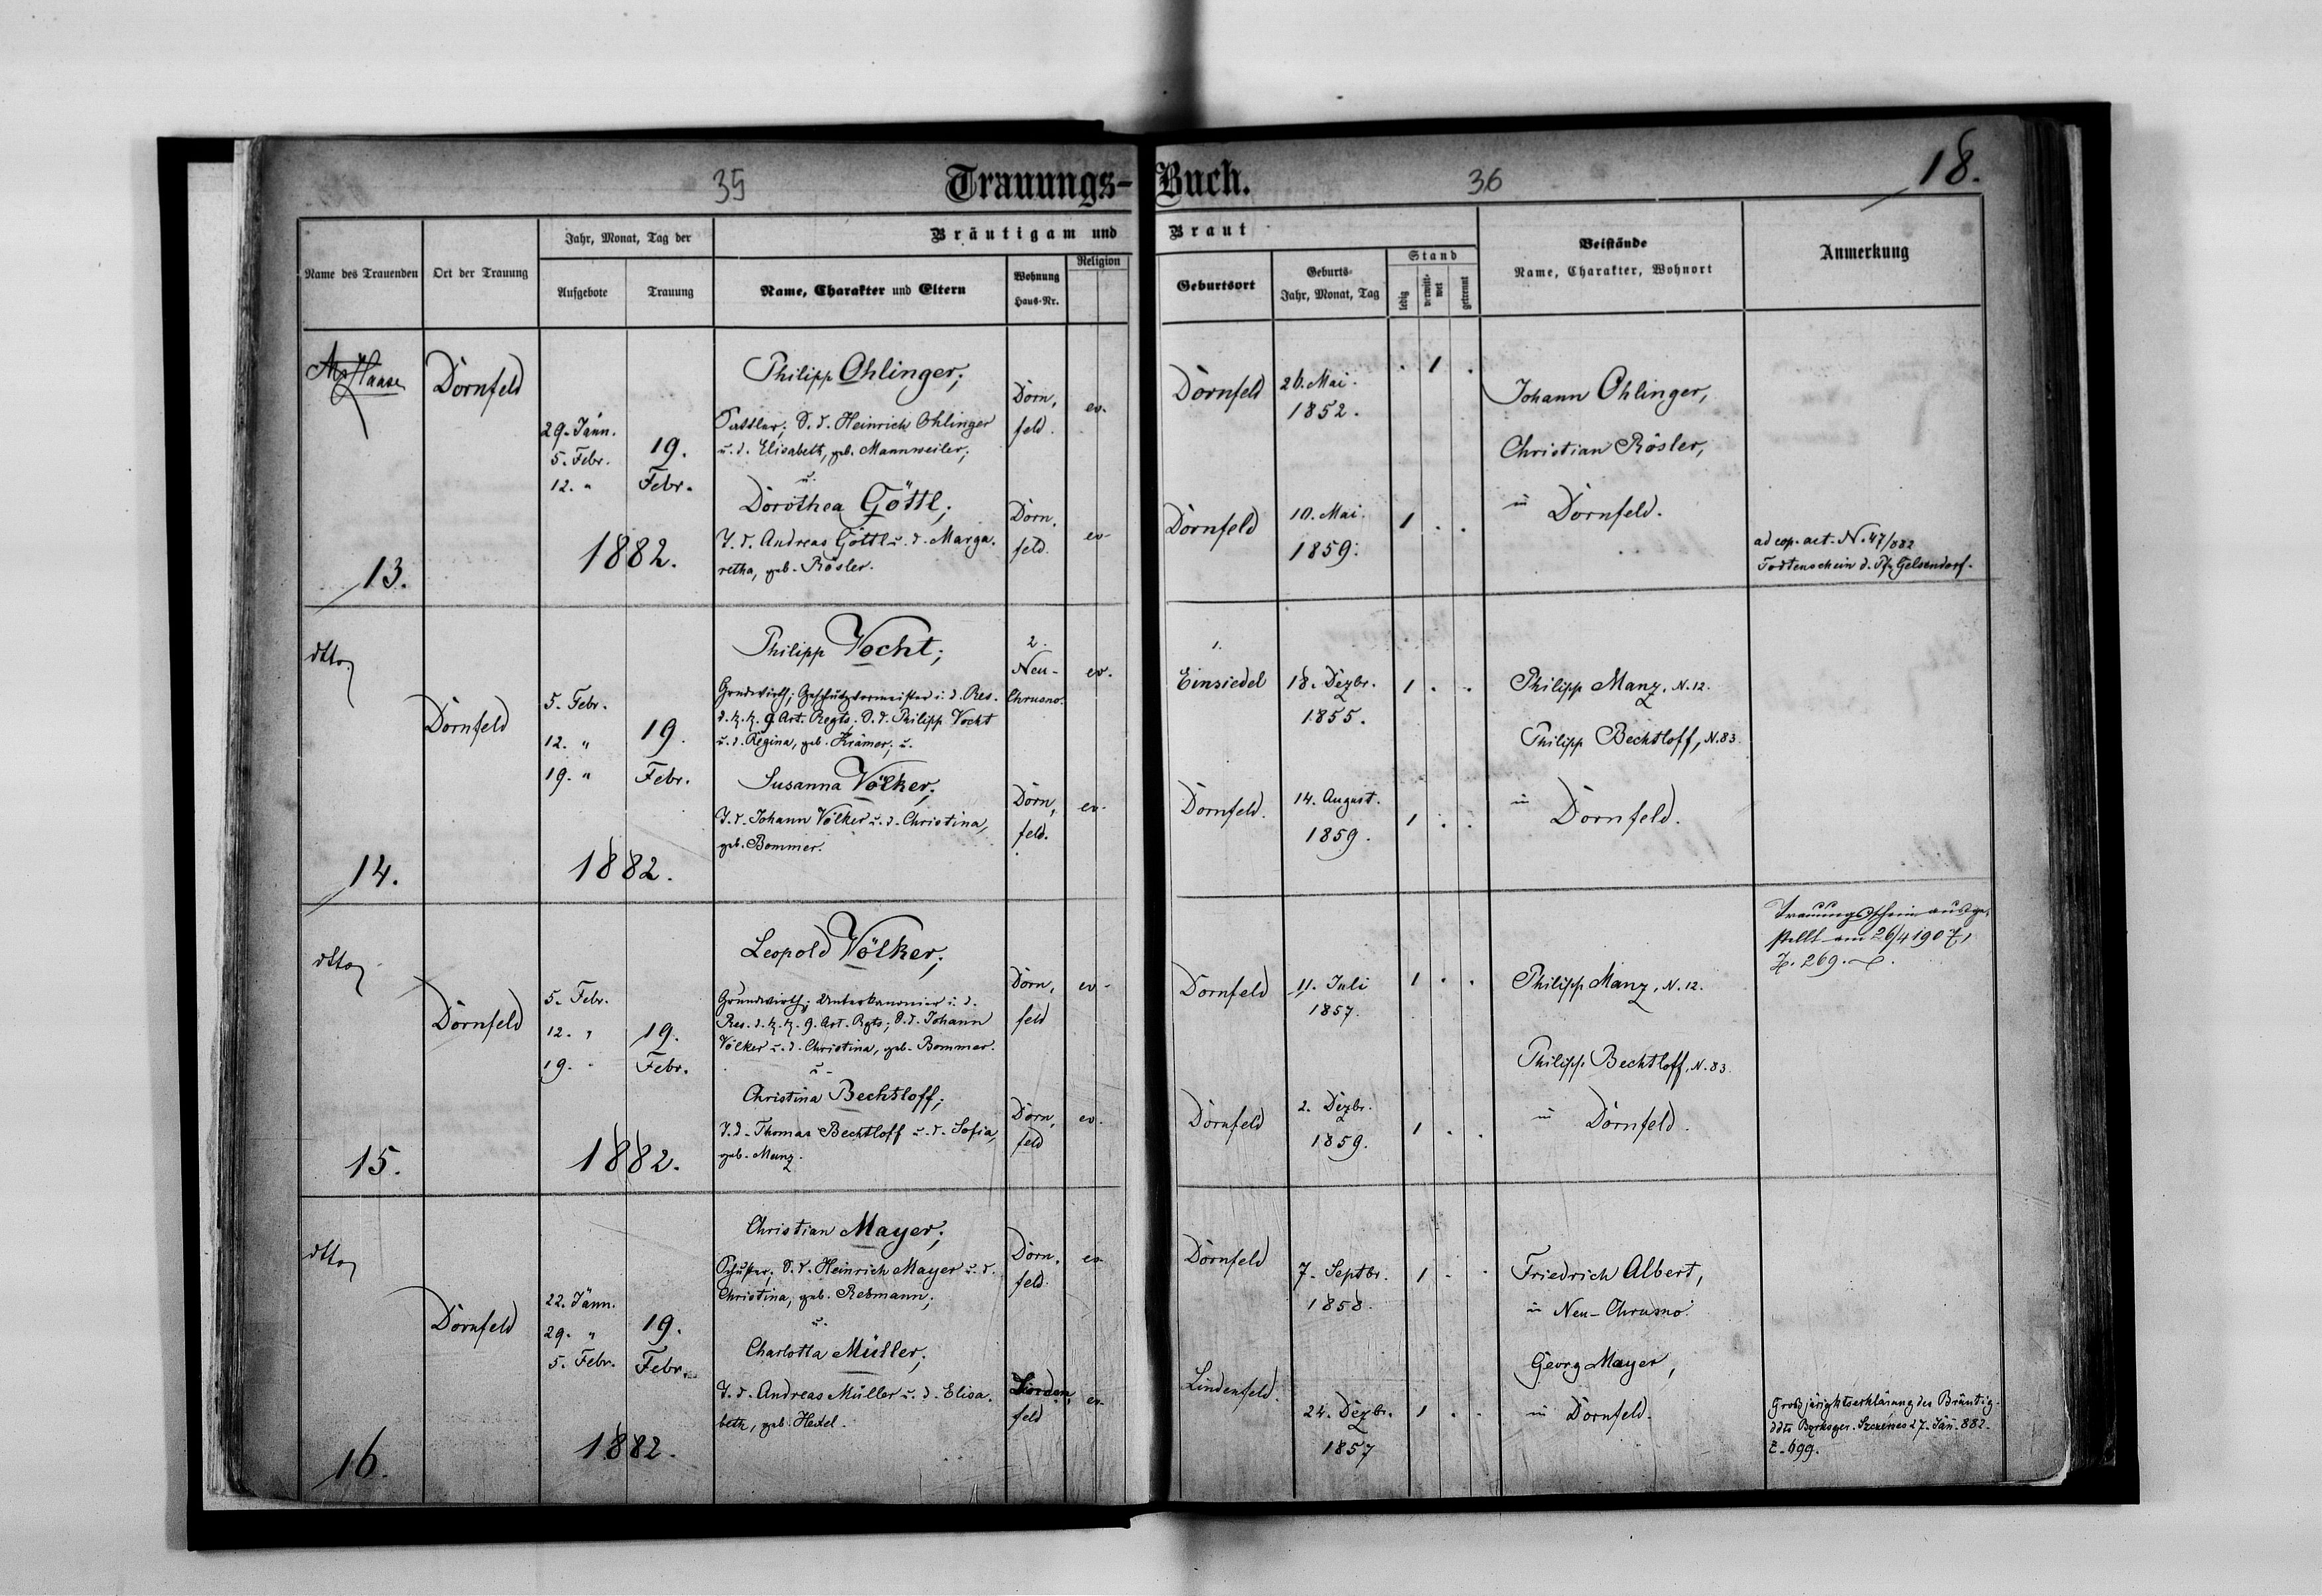 35
Trauungs-Buch.
36
18.
Name des Trauenden
Ort der Trauung
Jahr, Monat, Tag der
Aufgebote
Trauung
Bräutigam und Braut
Name, Charakter und Eltern
Wohnung
Haus-Nr.
Religion
Geburtsort
Geburts-
Jahr, Monat, Tag
Stand
ledig
verwit-
wet
getrennt
Beistände
Name, Charakter, Wohnort
Anmerkung
Haase
Dornfeld
29. Jänn.
5. Febr.
12. "
19.
Febr.
1882.
13.
Philipp Ohlinger;
Sattler; S. d. Heinrich Ohlinger
u. d. Elisabeth, geb. Mannweiler;
u.
Dorothea Göttl;
T. d. Andreas Göttl u. d. Marga-
retha, geb. Rösler.
Dorn,
feld.
ev.
Dorn,
feld.
ev.
Dornfeld
26. Mai.
1852.
. 1 .
Dornfeld
10. Mai.
1859.
1 . .
Johann Ohlinger,
Christian Rösler,
in Dornfeld.
ad cop. act. N. 47/882
Todtenschein d. Pf. Gelsendorf.
dtto
Dornfeld
5. Febr.
12. "
19. "
19.
Febr.
1882.
14.
Philipp Vocht;
Grundwirth; Geschützvormeister i. d. Res.
d. k. k. 9. Art. Regts. S. d. Philipp Vocht
u. d. Regina, geb. Krämer; u.
Susanna Völker;
T. d. Johann Völker u. d. Christina,
geb. Bommer.
2.
Neu-
Chrusno.
ev.
Dorn,
feld.
ev.
1.
Einsiedel
18. Dezbr.
1855.
1 . .
Dornfeld.
14. August.
1859.
1 . .
Philipp Manz, N. 12.
Philipp Bechtloff, N. 83.
in Dornfeld.
dtto
Dornfeld
5. Febr.
12. "
19. "
19.
Febr.
1882.
15.
Leopold Völker;
Grundwirth; Unterkanonier i. d.
Res. d. k. k. 9. Art. Rgts; S. d. Johann
Völker u. d. Christina, geb. Bommer.
u.
Christina Bechtloff;
T. d. Thomas Bechtloff u. d. Sofia,
geb. Manz.
Dorn,
feld
ev.
Dorn,
feld
ev.
Dornfeld
11. Juli
1857.
1 . .
Dornfeld
2. Dezbr.
1859.
1 . .
Philipp Manz, N. 12.
Philipp Bechtloff, N. 83.
in Dornfeld.
Trauungsschein ausge-
stellt am 26/4 1907,
Z. 269.
dtto
Dornfeld
22. Jänn.
29. "
5. Febr.
19.
Febr.
1882.
16.
Christian Mayer;
Schuster; S. d. Heinrich Mayer u. d.
Christina, geb. Rebmann;
u.
Charlotta Müller;
T. d. Andreas Müller u. d. Elisa-
beth, geb. Hexel.
Dorn,
feld.
ev.
Linden,
feld
ev.
Dornfeld
7. Septbr.
1858.
1 . .
Lindenfeld.
24. Dezbr.
1857
1 . .
Friedrich Albert,
in Neu-Chrusno.
Georg Mayer,
in Dornfeld.
Großjährigkeitserklärung des Bräutig.
ddto Bezksger. Szczerzec 27. Jän. 882.
Z. 699.